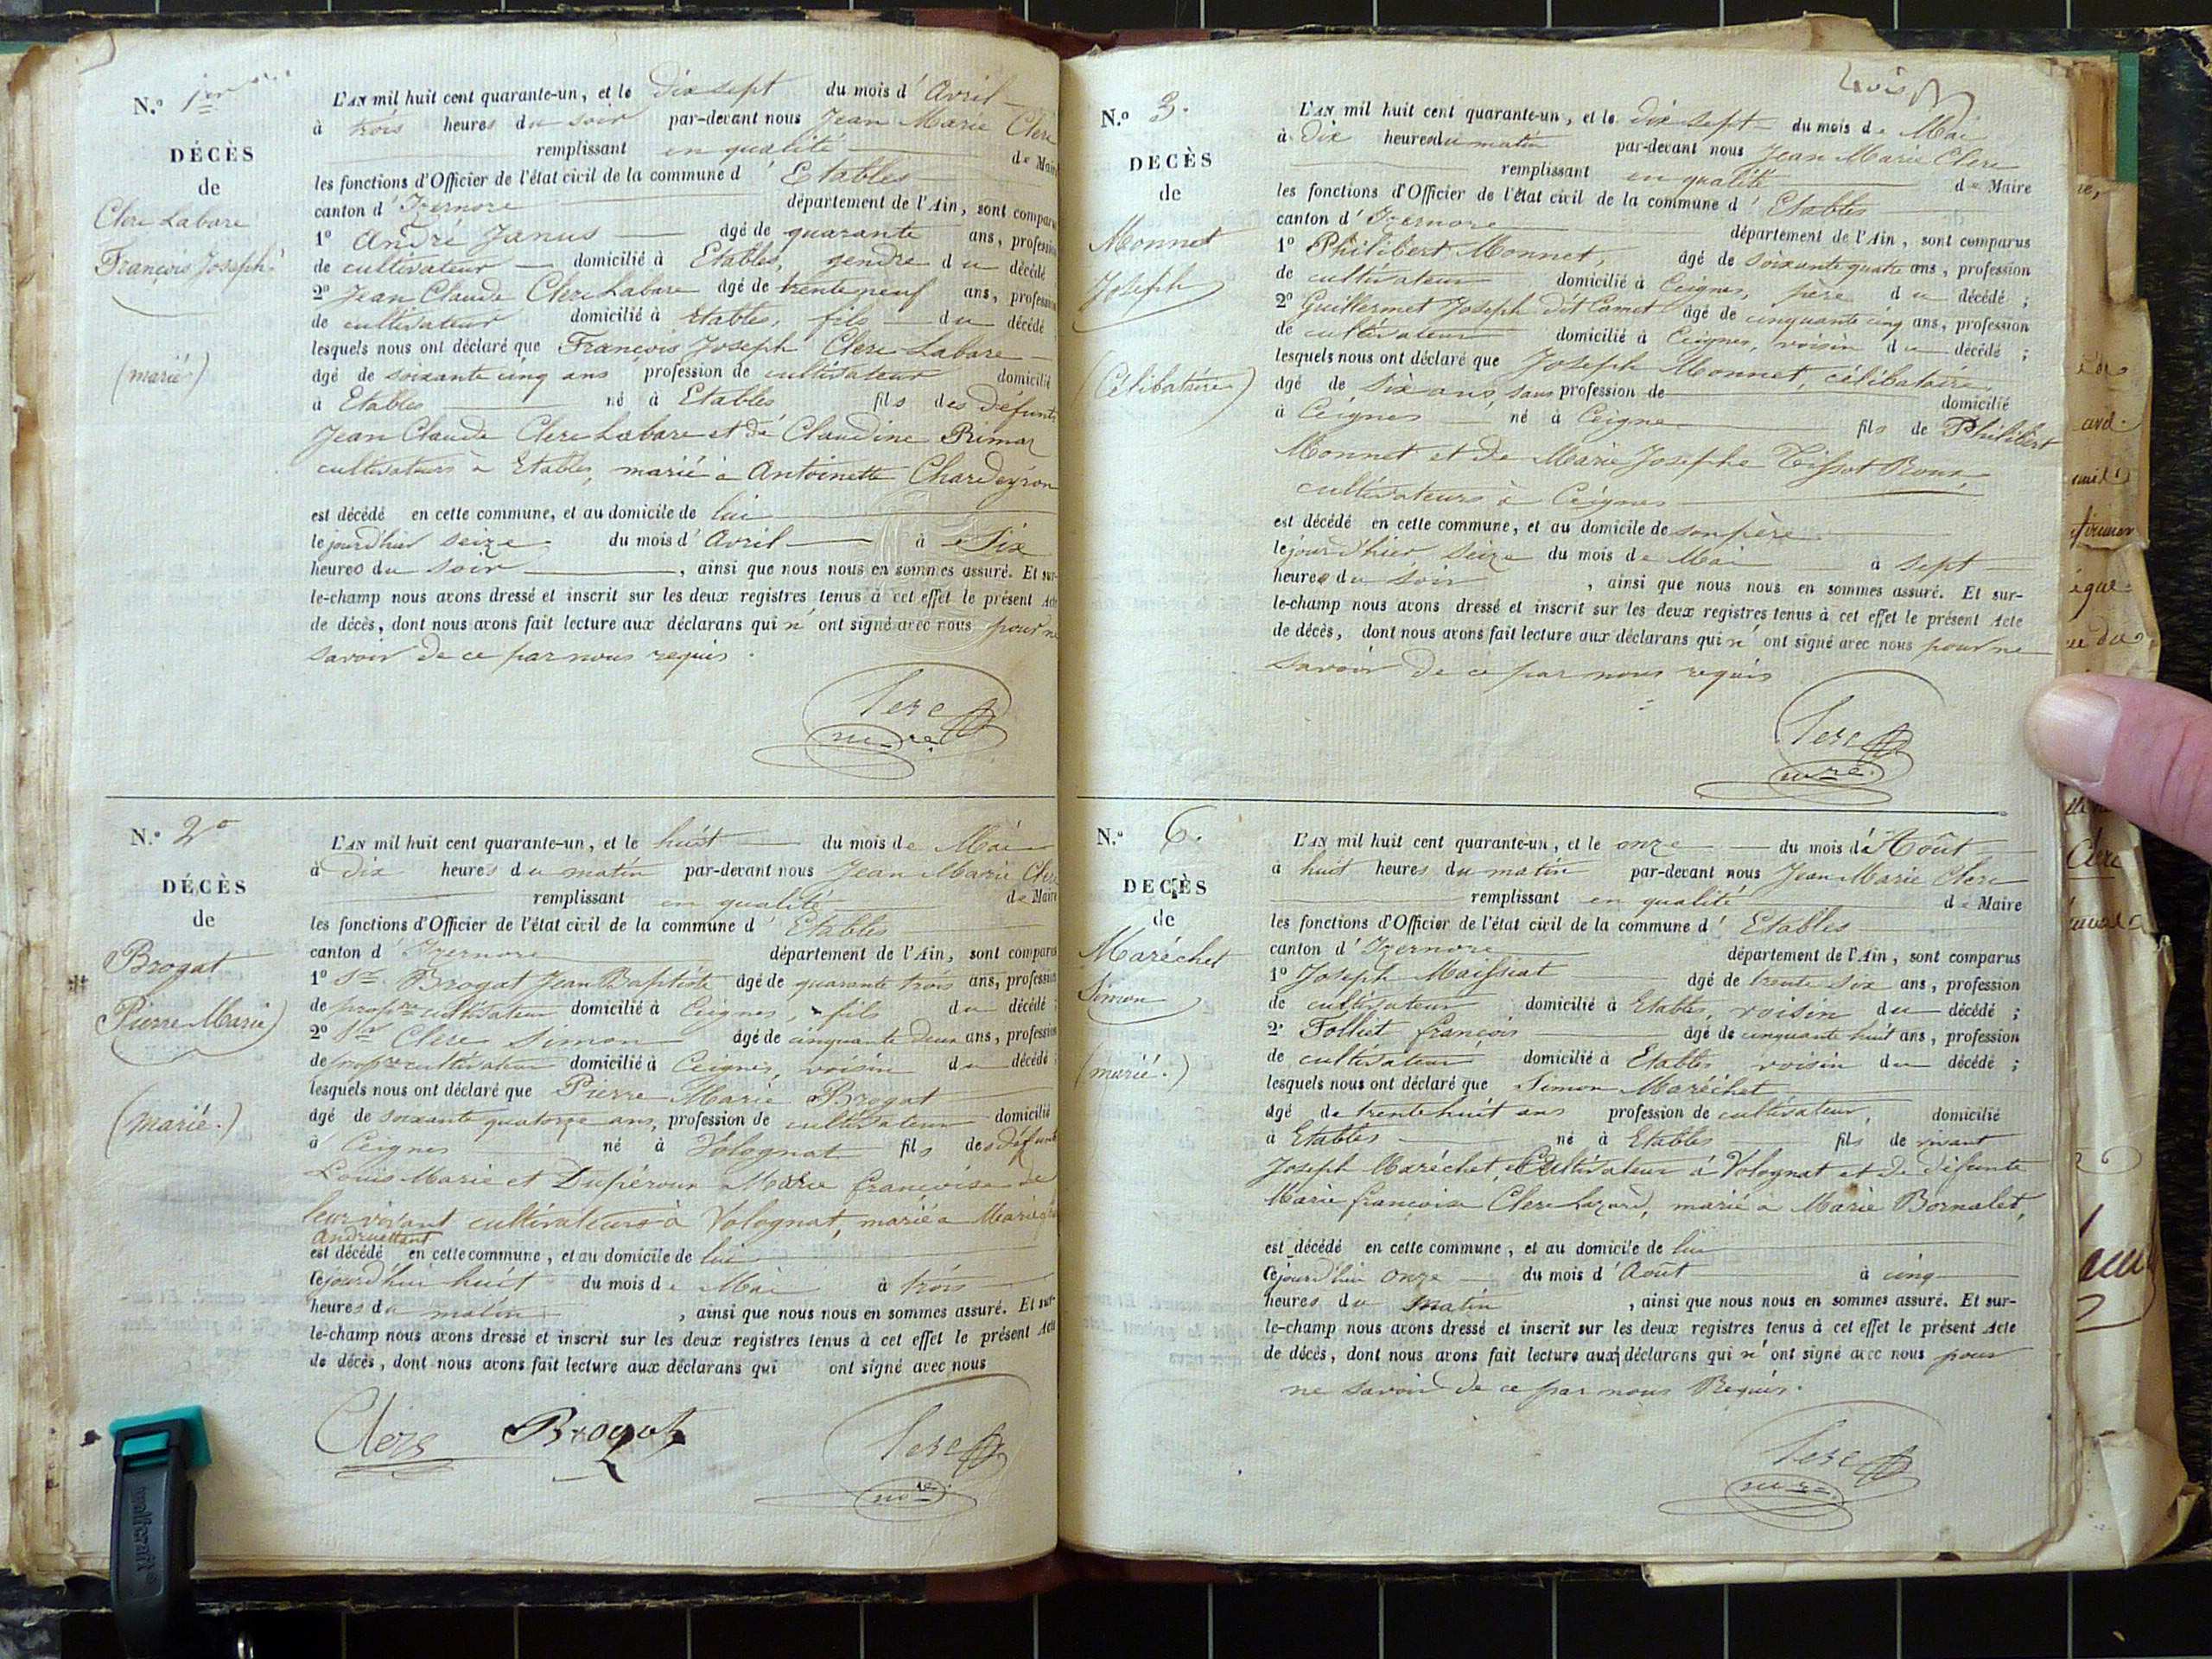 N.° 1er
DÉCÈS
de
Clerc Labare
François Joseph
(marié)
L'AN mil huit cent quarante-un, et le dix sept du mois d'Avril
à trois heures du soir par-devant nous Jean Marie Clerc
remplissant en qualité de Maire
les fonctions d'Officier de l'état civil de la commune d'Etables
canton d'Izernore département de l'Ain, sont comparus
1° André Janus âgé de quarante ans, profession
de cultivateur domicilié à Etables, gendre du décédé
2° Jean Claude Clerc Labare âgé de trente neuf ans, profession
de cultivateur domicilié à Etables, fils du décédé
lesquels nous ont déclaré que François Joseph Clerc Labare
âgé de soixante cinq ans profession de cultivateur domicilié
à Etables né à Etables fils des défunts
Jean Claude Clerc Labare et de Claudine Primaz
cultivateurs à Etables, marié à Antoinette Chardeyron
est décédé en cette commune, et au domicile de lui
le jourd'hier seize du mois d'Avril à Six
heures du soir, ainsi que nous nous en sommes assuré. Et sur-
le-champ nous avons dressé et inscrit sur les deux registres tenus à cet effet le présent Acte
de décès, dont nous avons fait lecture aux déclarans qui n'ont signé avec nous pour ne
savoir de ce par nous requis.
Clerc
maire
N.° 2e
DÉCÈS
de
Brogat
Pierre Marie
(marié.)
L'AN mil huit cent quarante-un, et le huit du mois de Mai
à dix heures du matin par-devant nous Jean Marie Clerc
remplissant en qualité de Maire
les fonctions d'Officier de l'état civil de la commune d'Etables
canton d'Izernore département de l'Ain, sont comparus
1° Sr. Brogat Jean Baptiste âgé de quarante trois ans, profession
de propre cultivateur domicilié à Ceignes, fils du décédé;
2° Sr Clerc Simon âgé de cinquante deux ans, profession
de propre cultivateur domicilié à Ceignes, voisin du décédé;
lesquels nous ont déclaré que Pierre Marie Brogat
âgé de soixante quatorze ans, profession de cultivateur domicilié
à Ceignes né à Volognat fils des défunts
Louis Marie et Dupéroux Marie françoise de
leur vivant cultivateurs à Volognat, marié à Marie
andruettant
est décédé en cette commune, et au domicile de lui
Cejourd'hui huit du mois de Mai à trois
heures du matin, ainsi que nous nous en sommes assuré. Et sur-
le-champ nous avons dressé et inscrit sur les deux registres tenus à cet effet le présent Acte
de décès, dont nous avons fait lecture aux déclarans qui ont signé avec nous
Clerc Brogat Clerc
mre
N.° 3.
DECÈS
de
Monnet
Joseph
(Célibataire)
L'AN mil huit cent quarante-un, et le dix sept du mois de Mai
à dix heures du matin par-devant nous Jean Marie Clerc
remplissant en qualité de Maire
les fonctions d'Officier de l'état civil de la commune d'Etables
canton d'Izernore département de l'Ain, sont comparus
1° Philibert Monnet, âgé de soixante quatre ans, profession
de cultivateur domicilié à Ceignes, père du décédé;
2° Guillermet Joseph dit Comet âgé de cinquante cinq ans, profession
de cultivateur domicilié à Ceignes, voisin du décédé;
lesquels nous ont déclaré que Joseph Monnet, célibataire
âgé de dix ans, sans profession de domicilié
à Ceignes né à Ceignes fils de Philibert
Monnet et de Marie Josephe Tissot Roux,
cultivateurs à Ceignes
est décédé en cette commune, et au domicile de son père
le jourd'hier seize du mois de Mai à sept
heures du soir, ainsi que nous nous en sommes assuré. Et sur-
le-champ nous avons dressé et inscrit sur les deux registres tenus à cet effet le présent Acte
de décès, dont nous avons fait lecture aux déclarans qui n'ont signé avec nous pour ne
savoir de ce par nous requis
Clerc
mre.
N.° 6.
DECÈS
de
Maréchet
Simon
(marié.)
L'AN mil huit cent quarante-un, et le onze du mois d'Août
à huit heures du matin par-devant nous Jean Marie Clerc
remplissant en qualité de Maire
les fonctions d'Officier de l'état civil de la commune d'Etables
canton d'Izernore département de l'Ain, sont comparus
1° Joseph Maissiat âgé de trente six ans, profession
de cultivateur domicilié à Etables, voisin du décédé;
2° Folliet françois âgé de cinquante huit ans, profession
de cultivateur domicilié à Etables voisin du décédé;
lesquels nous ont déclaré que Simon Maréchet
âgé de trente huit ans profession de cultivateur, domicilié
à Etables né à Etables fils de vivant
Joseph Maréchet, Cultivateur à Volognat et de défunte
Marie françoise Clerc Lazard, marié à Marie Bornalet,
est décédé en cette commune, et au domicile de lui
Cejourd'hui onze du mois d'Août à cinq
heures du matin, ainsi que nous nous en sommes assuré. Et sur-
le-champ nous avons dressé et inscrit sur les deux registres tenus à cet effet le présent Acte
de décès, dont nous avons fait lecture aux déclarans qui n'ont signé avec nous pour
ne savoir de ce par nous Requis.
Clerc
mre.